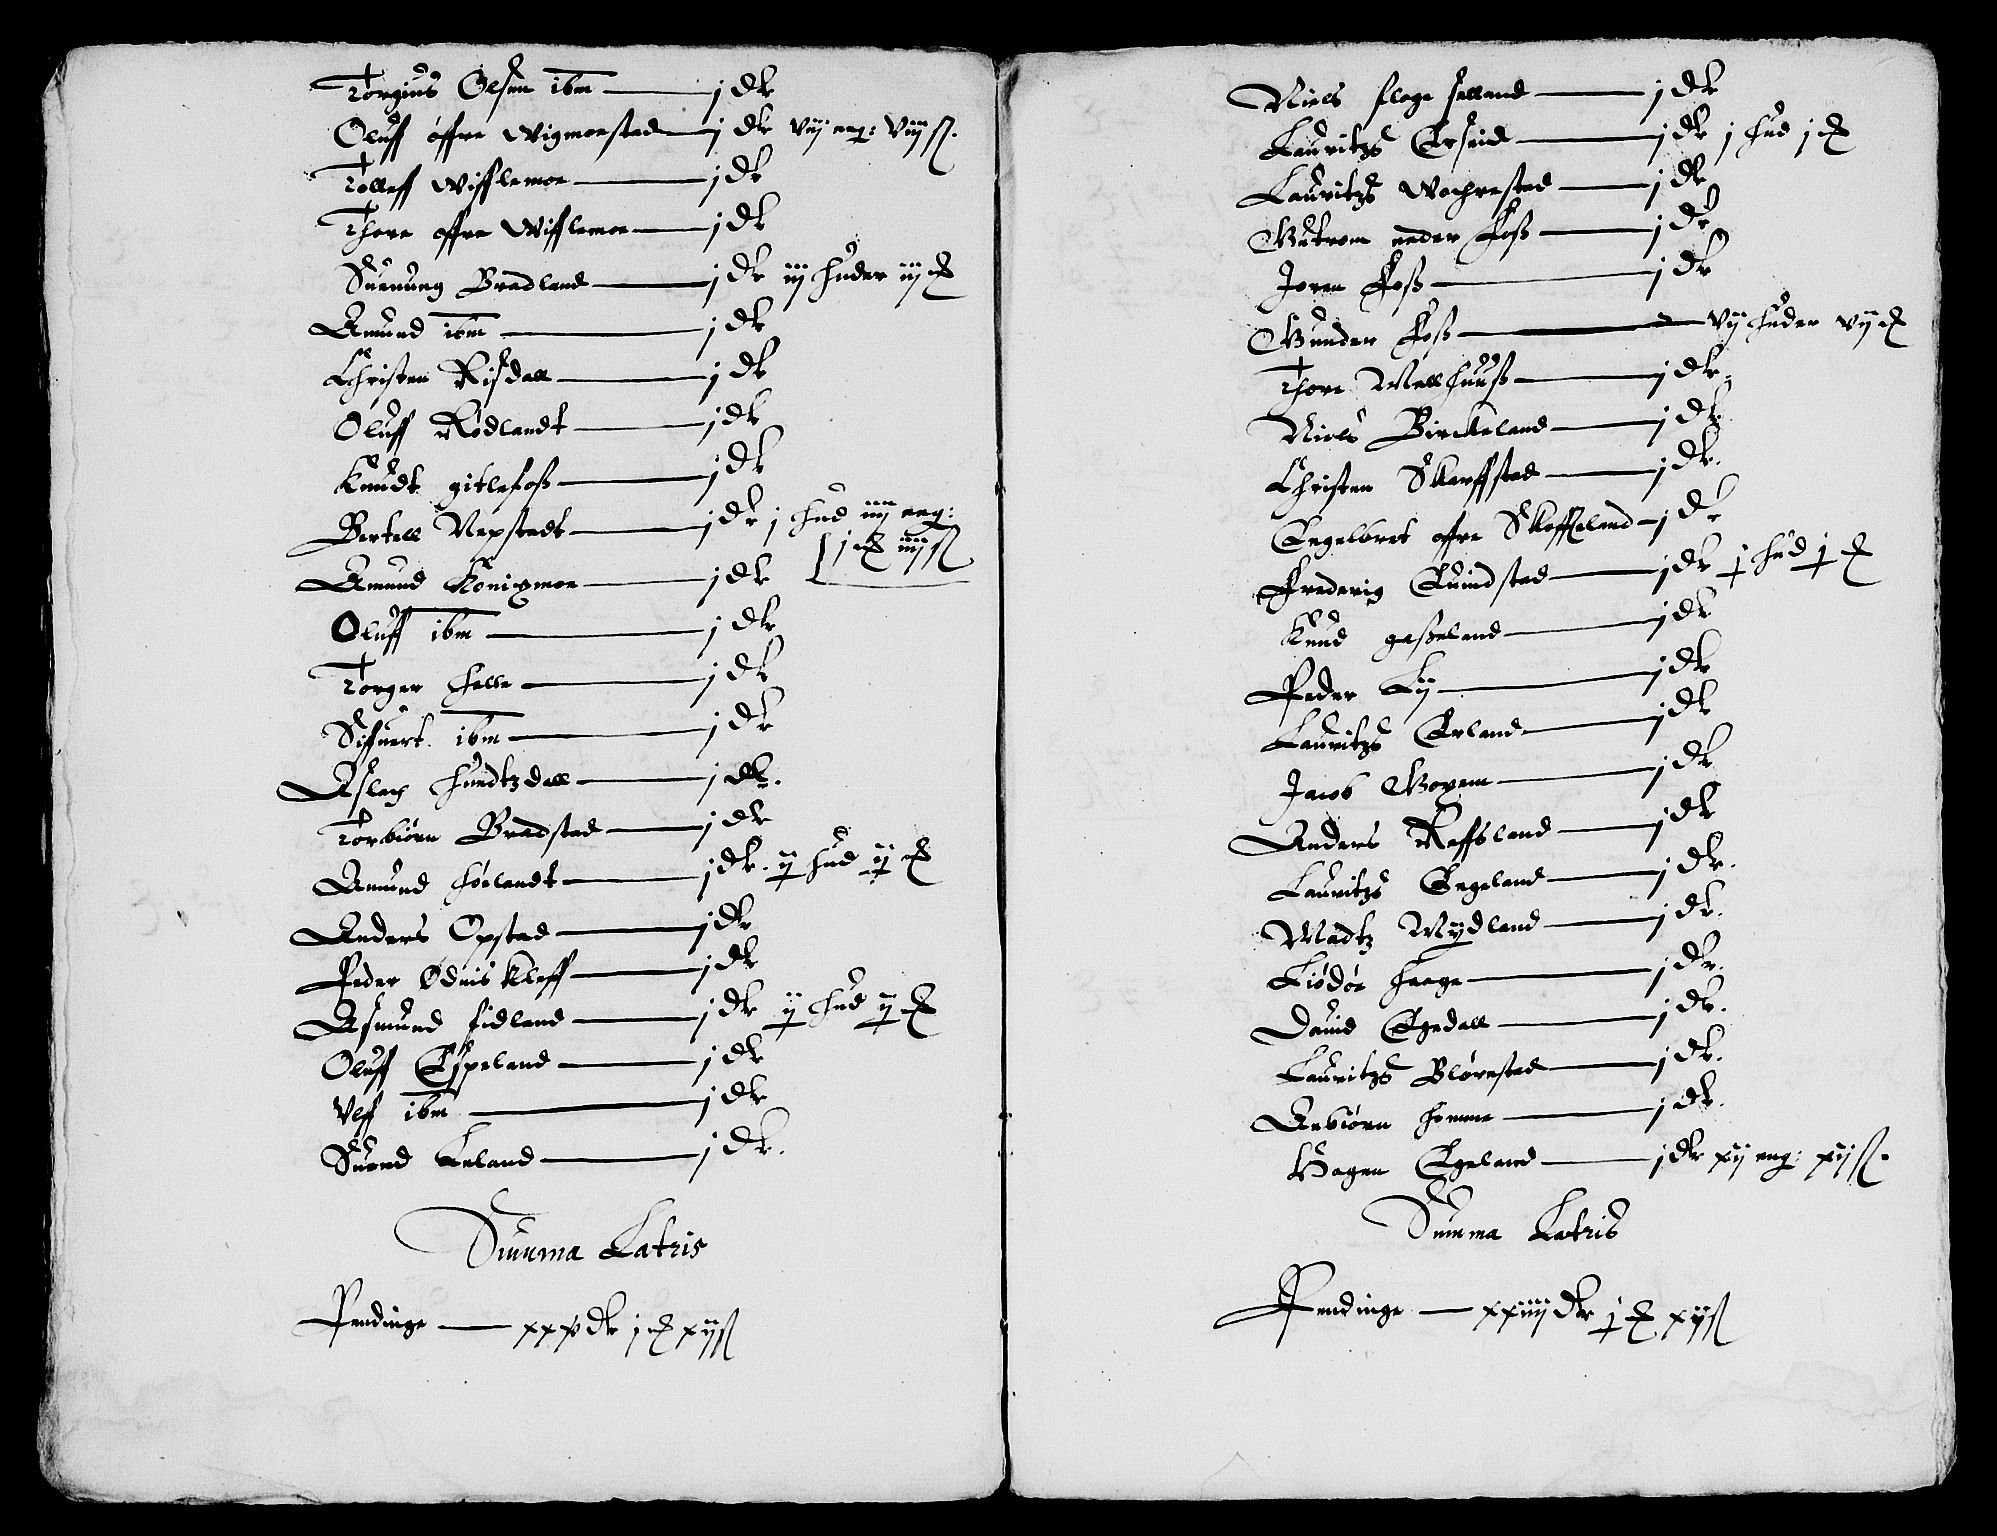 Torgius Olsen ibm — j dlr
Oluff offre Wigmorstad — j dlr viij eng: viij ß.
Tolleff Wifflemoe — j dlr
Thore offre Wifflemoe — j dlr
Suenung Bradland — j dlr iij huder iij
Amund ibm — j dlr
Christen Risdall — j dlr
Oluff Rødlandt — j dlr
Knudt gitlefoß — j dlr
Bertell Nepstadt — j dlr j hud iiij eng:
j iiij ß
Amund Konigmoe — j dlr
Oluff ibm — j dlr
Torger Helle — j dlr
Siffuert ibm — j dlr
Aslag Hundtzdall — j dlr.
Torbiørn Bradstad — j dlr
Amund Hørlandt — j dlr. ij hud ij
Anders Opstad — j dlr
Peder Ødnis Kleff — j dlr
Asmund fidland — j dlr ij hud ij
Oluff Espeland — j dlr
Vlff ibm — j dlr
Suend Leland — j dlr.
Summa Latris
Pendinge — xxv dlr j xij ß
Niels flage Helland — j dlr
Lauritzs Erseid — j dlr j hud j
Lauritzs Wochrestad — j dlr
Gutrom neder Foß — j dlr
Joren Foß — j dlr
Gunder Foß — vij huder vij
Thore Mellhuuß — j dlr.
Niels Birckeland — j dlr.
Christen Skarffstad — j dlr.
Engelbret offre Skoffeland — j dlr
Frederig Quindstad — j dlr j hud j
Knud gaßeland — j dlr
Peder Lij — j dlr
Lauritzs Erland — j dlr
Jacob — j dlr
Anders Reffsland — j dlr
Lauritzs Engeland — j dlr.
Madtz Mydland — j dlr.
Liødør Haage — j dlr.
Dauid Egedall — j dlr.
Lauritzs Blørestad — j dlr.
Anbiørn Homme — j dlr.
Hagen Egeland — j dlr xij eng: xij ß.
Summa Latris
Pendinge — xxiiij dlr j xij ß